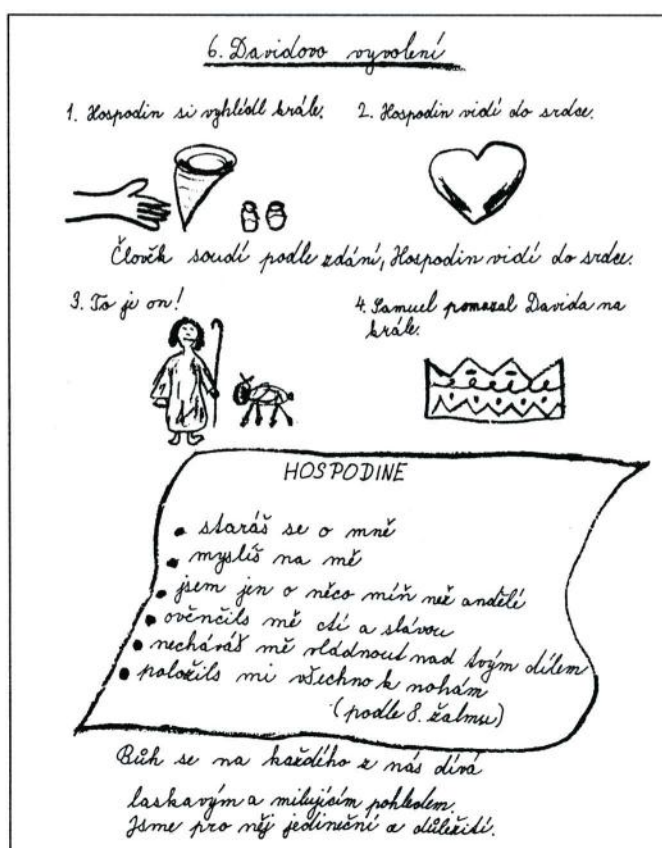 6. Davidovo vyvolení
1. Hospodin si vyhlédl krále.
2. Hospodin vidí do srdce.
Člověk soudí podle zdání, Hospodin vidí do srdce.
3. To je on!
4. Samuel pomazal Davida na
krále.
HOSPODINE
• staráš se o mně
• myslíš na mě
• jsem jen o něco míň než andělé
• ověnčils mě ctí a slávou
• necháváš mě vládnout nad tvým dílem
• položils mi všechno k nohám
(podle 8. žalmu)
Bůh se na každého z nás dívá
laskavým a milujícím pohledem.
Jsme pro něj jedineční a důležití.